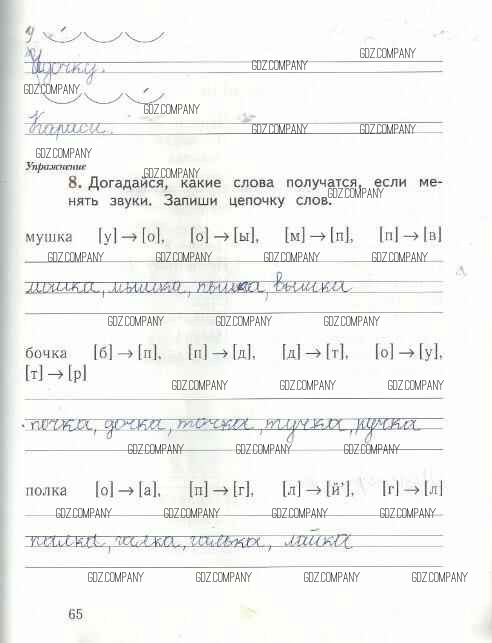 у
GDZ.COMPANY
Удочку. GDZ.COMPANY
GDZ.COMPANY
GDZ.COMPANY
Караси. GDZ.COMPANY GDZ.COMPANY
GDZ.COMPANY
Упражнение GDZ.COMPANY
8. Догадайся, какие слова получатся, если ме-
GDZ.COMPANY
нять звуки. Запиши цепочку слов.
мушка [у] → [о], [о] → [ы], [м] → [п], [п] → [в]
GDZ.COMPANY GDZ.COMPANY GDZ.COMPANY GDZ.COMPANY
мошка, мышка, пышка, вышка
GDZ.COMPANY GDZ.COMPANY GDZ.COMPANY
бочка [б] → [п], [п] → [д], [д] → [т], [о] → [у],
[т] → [р]
GDZ.COMPANY GDZ.COMPANY GDZ.COMPANY
почка, дочка, точка, тучка, ручка
GDZ.COMPANY GDZ.COMPANY GDZ.COMPANY
полка [о] → [а], [п] → [г], [л] → [й'], [г] → [л]
GDZ.COMPANY GDZ.COMPANY GDZ.COMPANY GDZ.COMPANY
палка, галка, галька, лайка
GDZ.COMPANY GDZ.COMPANY GDZ.COMPANY GDZ.COMPANY
65